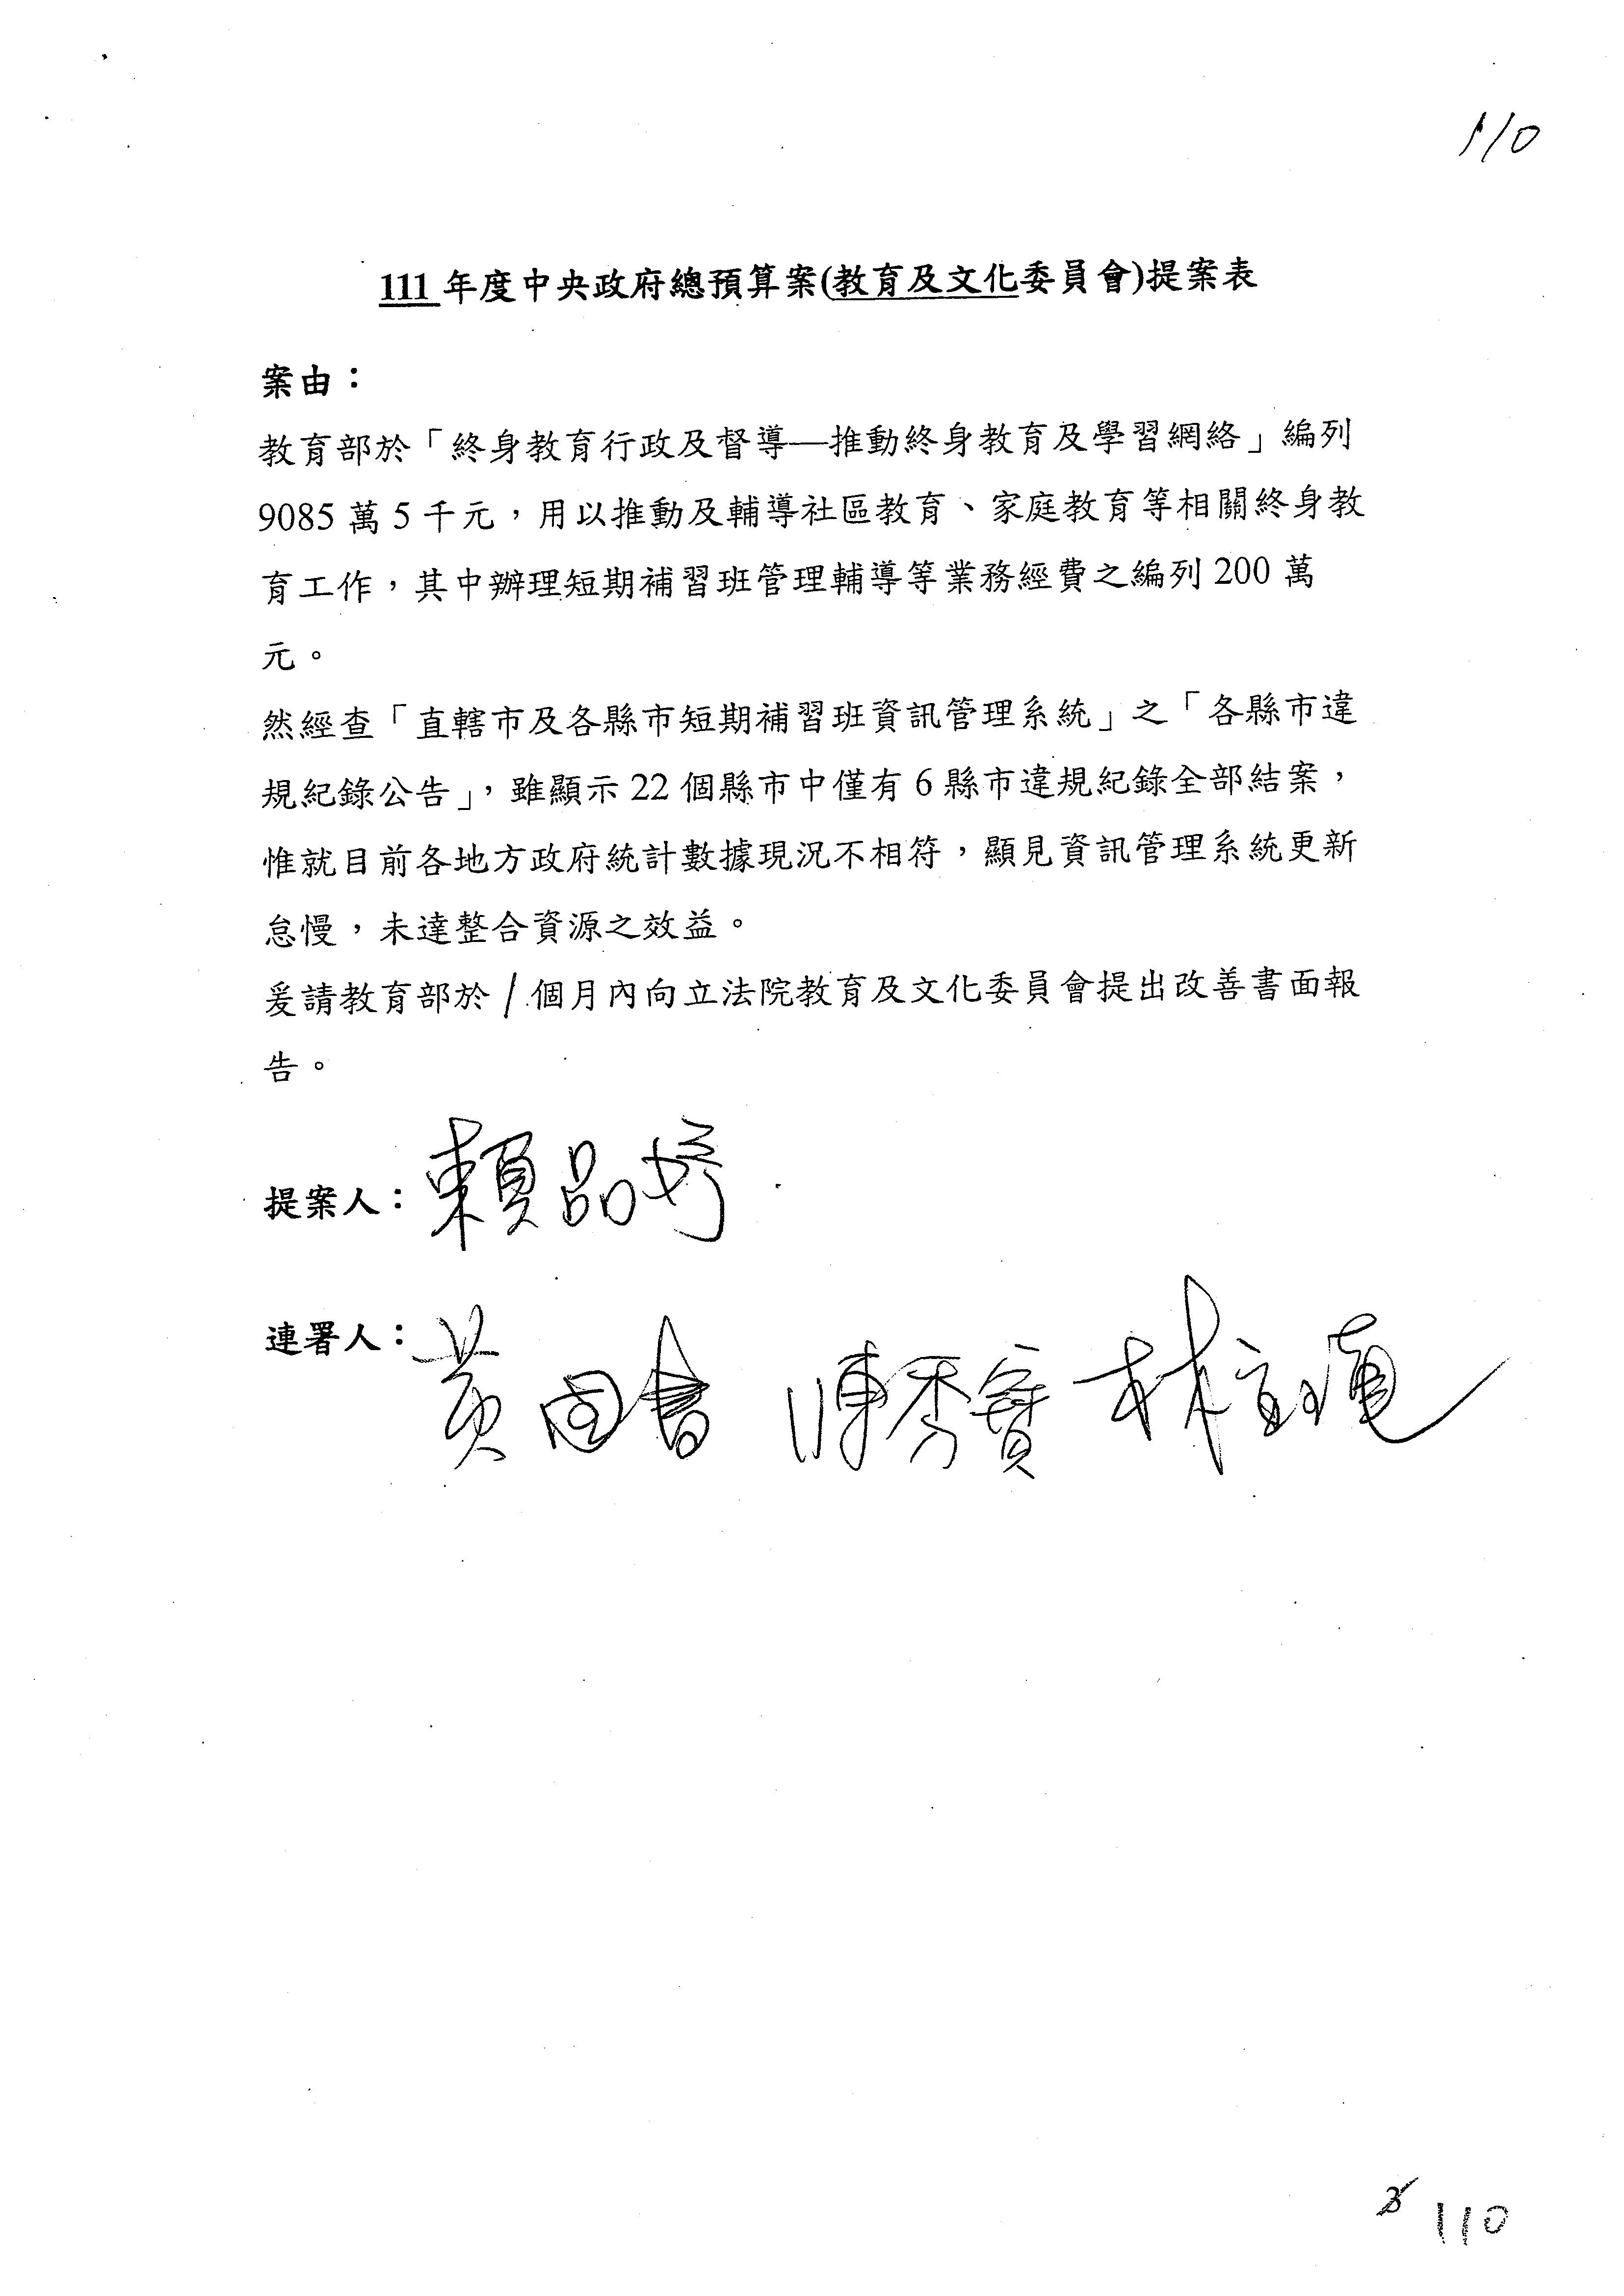 110
111年度中央政府總預算案(教育及文化委員會)提案表
案由：
教育部於「終身教育行政及督導—推動終身教育及學習網絡」編列
9085萬5千元，用以推動及輔導社區教育、家庭教育等相關終身教
育工作，其中辦理短期補習班管理輔導等業務經費之編列200萬
元。
然經查「直轄市及各縣市短期補習班資訊管理系統」之「各縣市違
規紀錄公告」，雖顯示22個縣市中僅有6縣市違規紀錄全部結案，
惟就目前各地方政府統計數據現況不相符，顯見資訊管理系統更新
怠慢，未達整合資源之效益。
爰請教育部於1個月內向立法院教育及文化委員會提出改善書面報
告。
提案人：賴品妤
連署人：黃國書 陳秀寳 林宜瑾
110